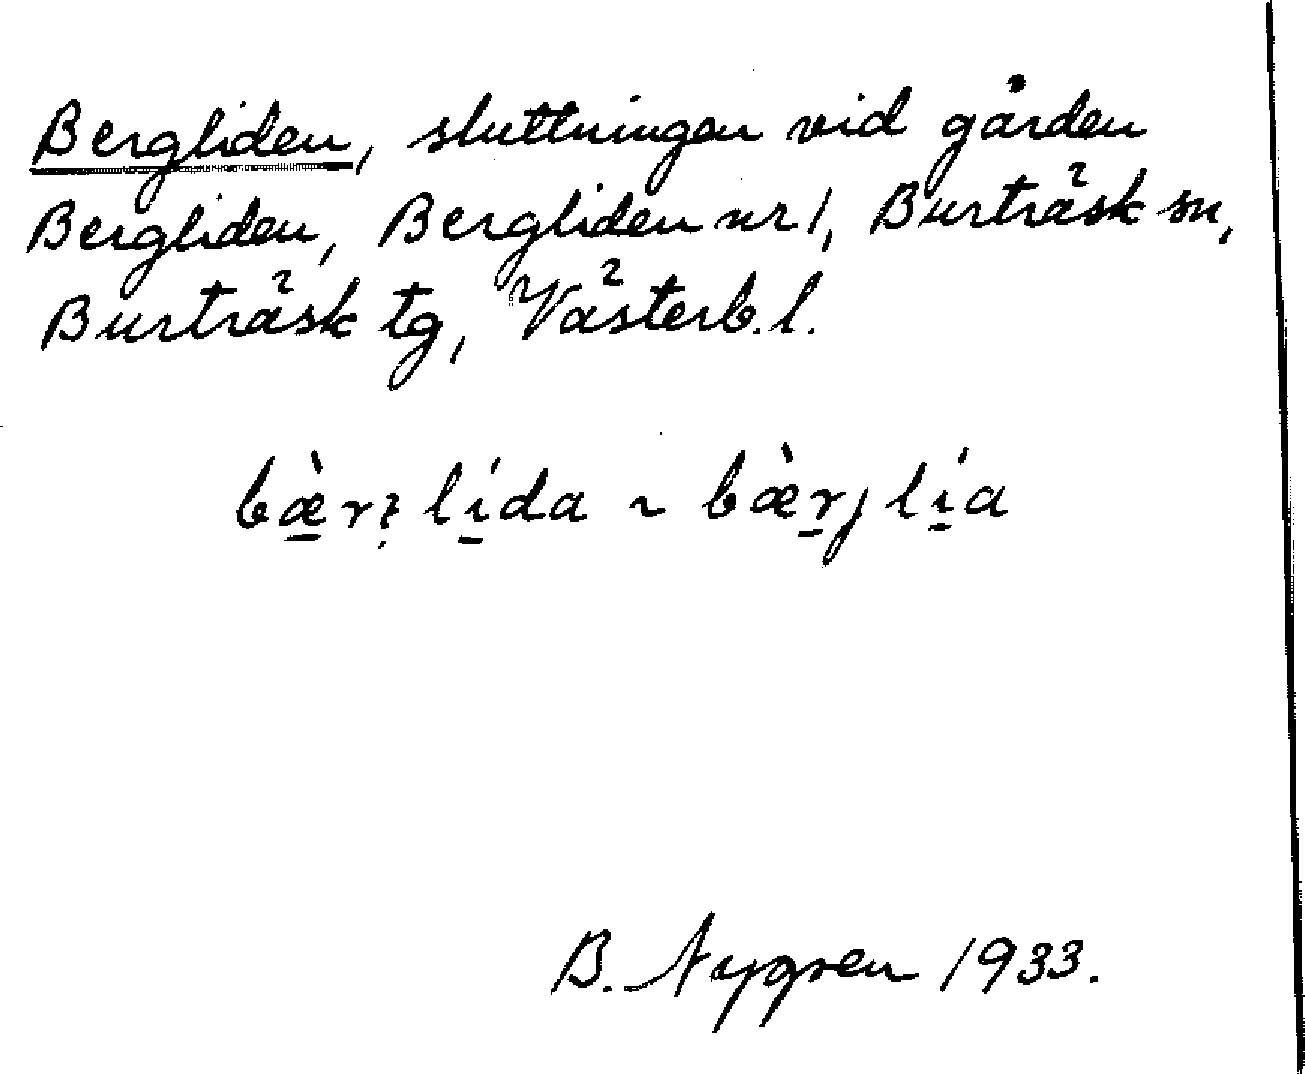 Bergliden, sluttningen vid gården
Bergliden, Bergliden nr 1, Burträsk sn,
Burträsk tg, Västerb. l.
bæ̠̀r lí̠da ~ bæ̀r̠j lí̠a
B. Nygren 1933.